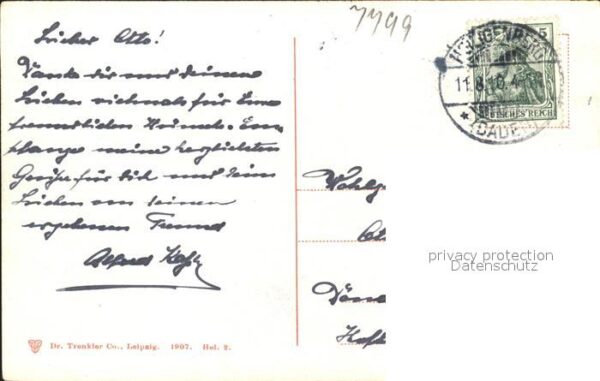 7799
Lieber Otto!
Danke dir und deinen
Lieben vielmals für Eure
freundlichen Wünsche. Em-
pfange meine herzlichsten
Grüße für Dich und dein
Lieben von deinem
ergebenen Freund
Alfred
HEILIGENBERG
11.8.10.
(BADEN)
5
DEUTSCHES REICH
Wohlg
privacy protection
Datenschutz
Dr. Trenkler Co., Leipzig. 1907. Hei. 2.